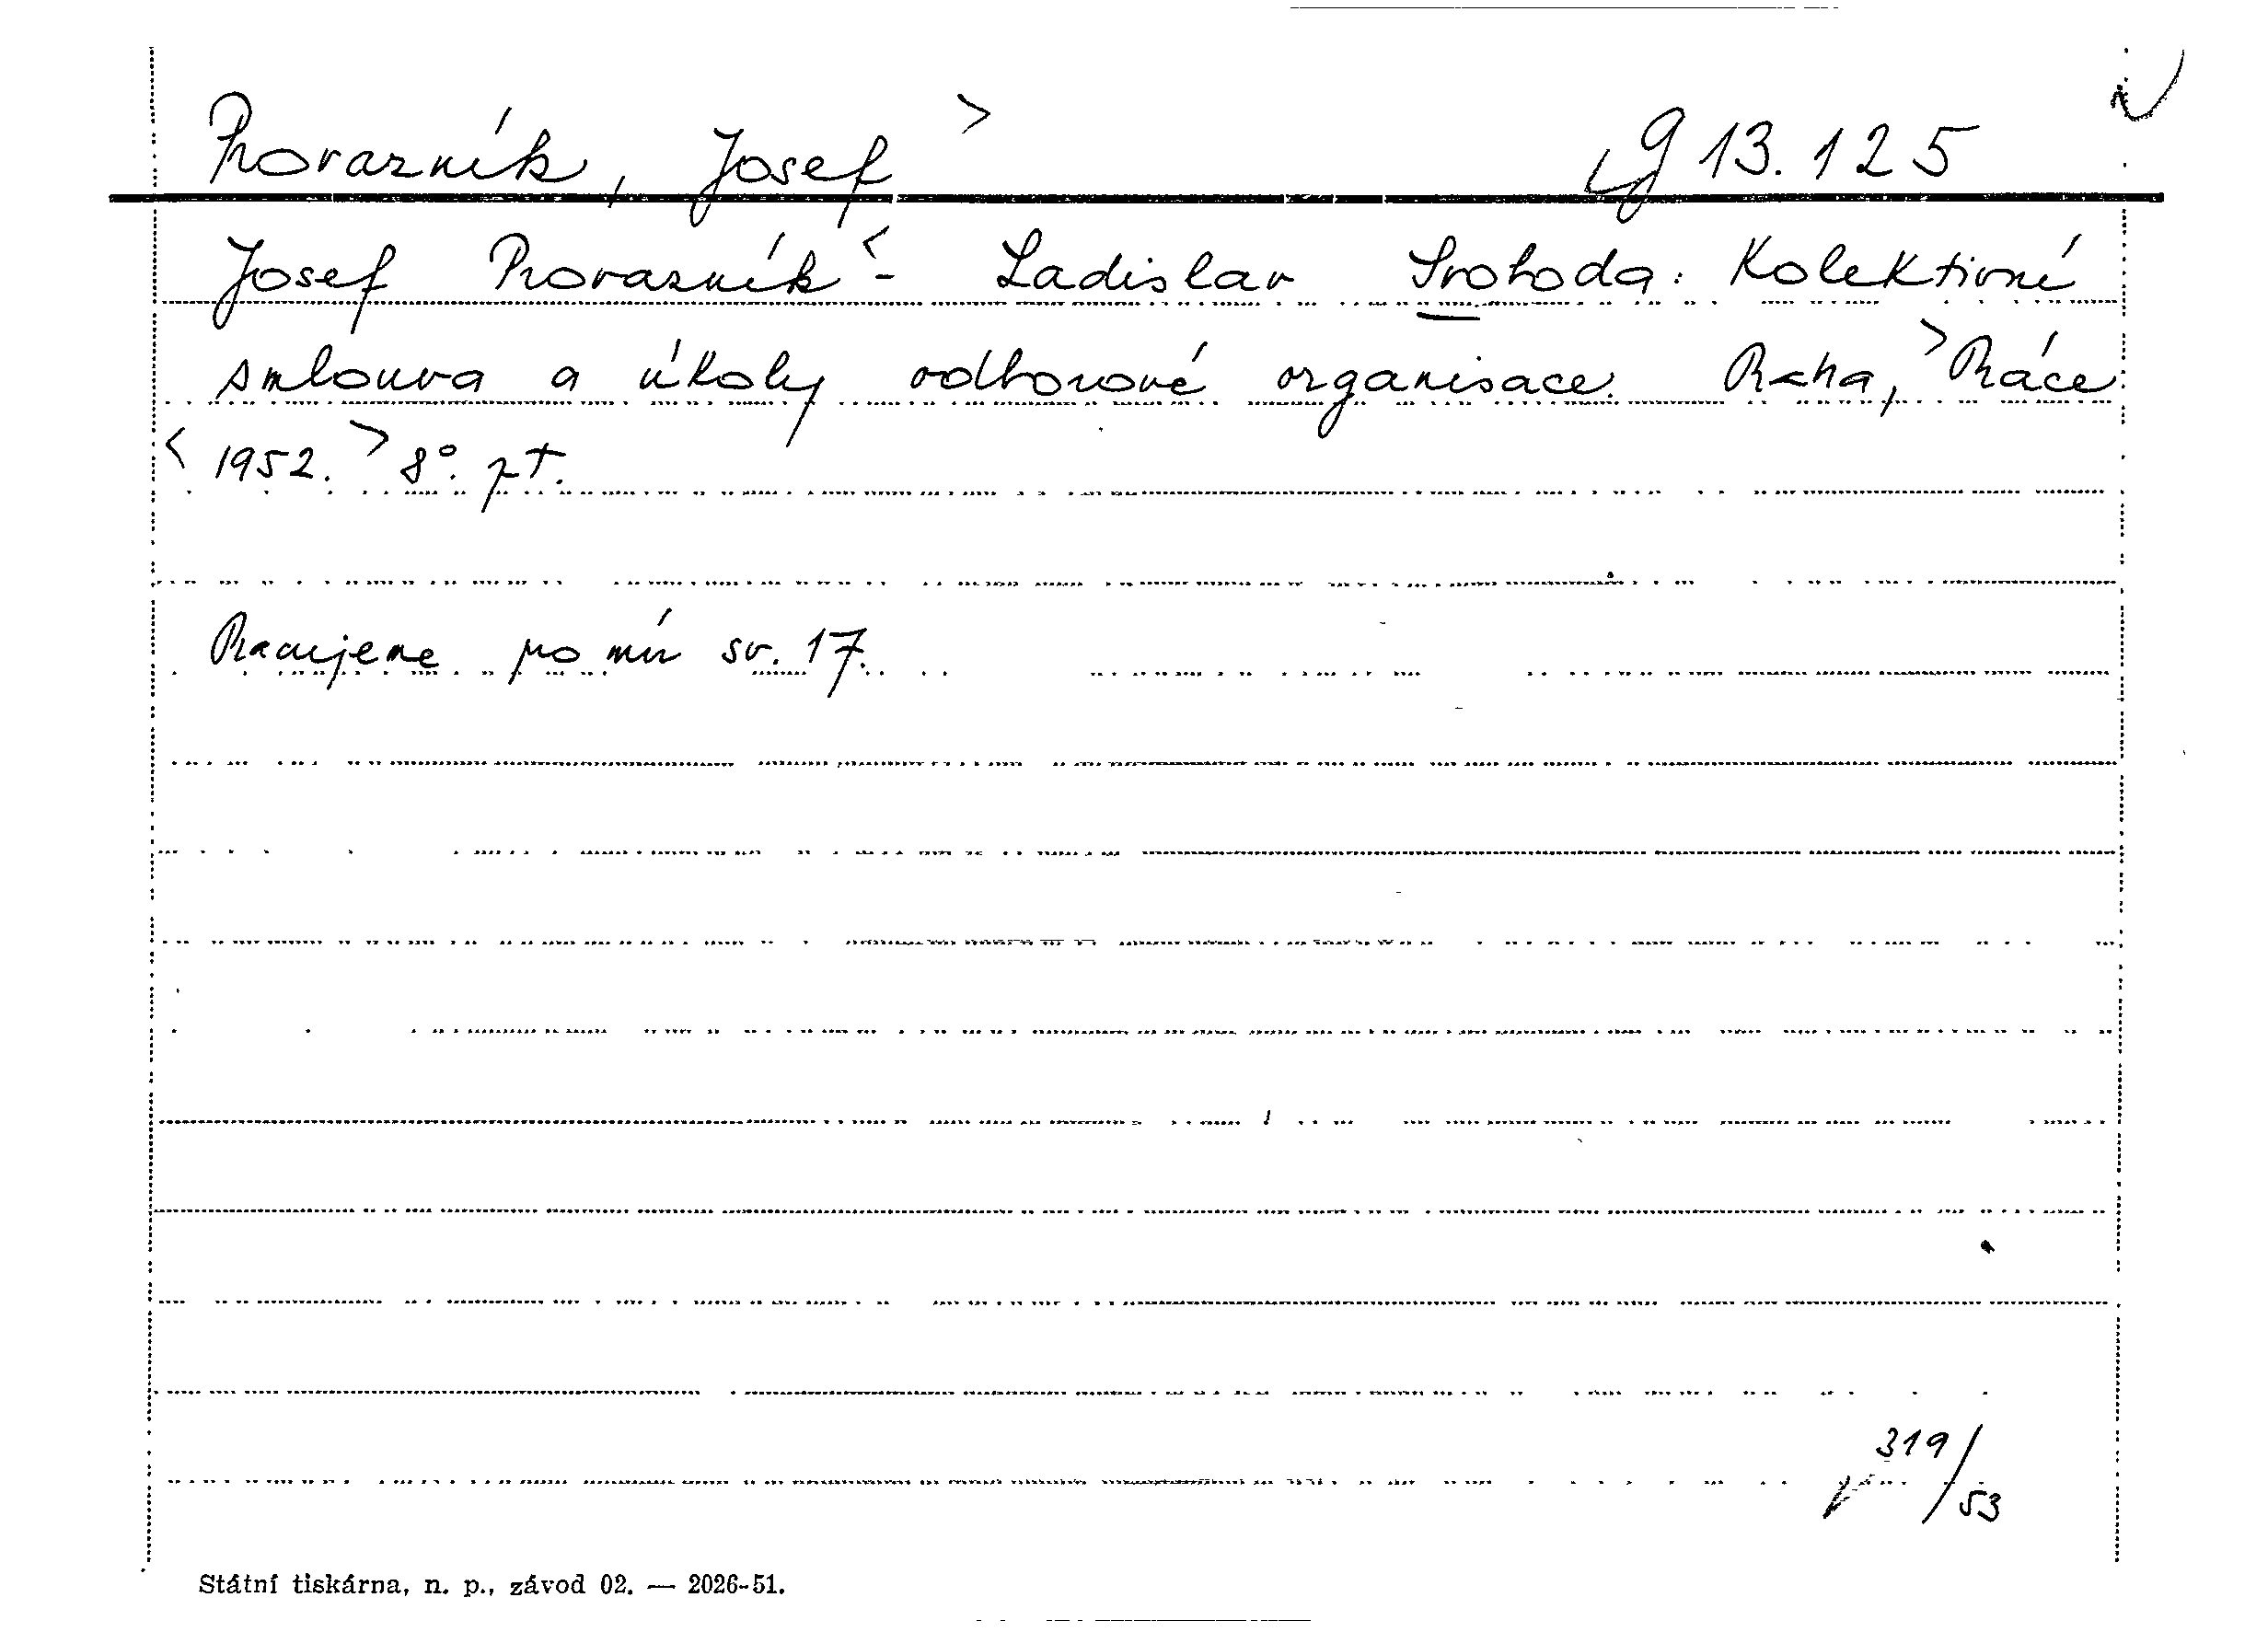 Provazník, Josef > g 13.125
Josef Provazník <- Ladislav Svoboda: Kolektivní
smlouva a úkoly odborové organisace. Praha, > Práce
< 1952. > 8°. pt.
Pracujeme pro mír sv. 17.
319/53
Státní tiskárna, n. p., závod 02. — 2026-51.